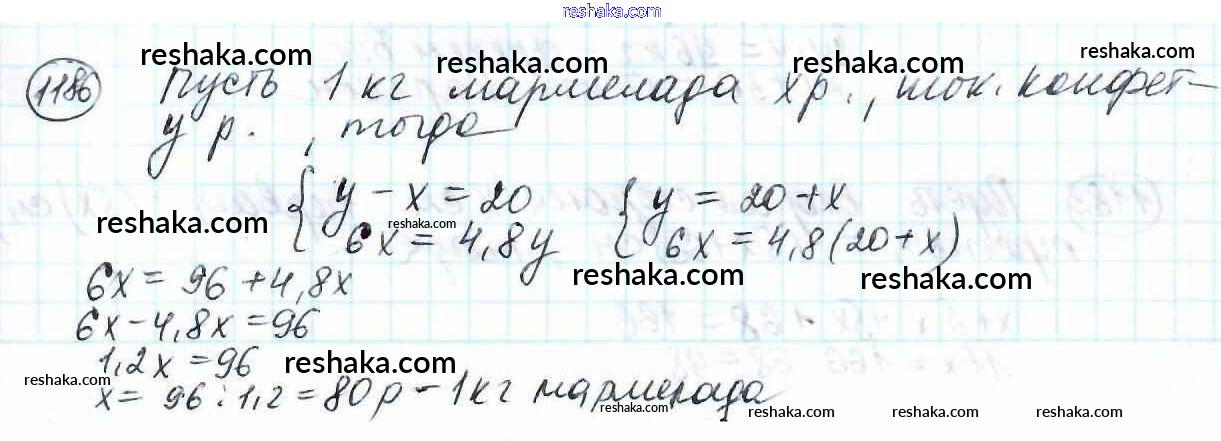 reshaka.com
reshaka.com reshaka.com reshaka.com reshaka.com
1186 Пусть 1 кг мармелада х р., шок. конфет -
у р. , тогда
reshaka.com reshaka.com reshaka.com
{ y - x = 20 { y = 20 + x
reshaka.com reshaka.com
6x = 4,8y 6x = 4,8(20 + x)
reshaka.com reshaka.com
6x = 96 + 4,8x
reshaka.com
6x - 4,8x = 96
1,2x = 96 reshaka.com
reshaka.com
x = 96 : 1,2 = 80 р - 1 кг мармелада
reshaka.com reshaka.com reshaka.com reshaka.com